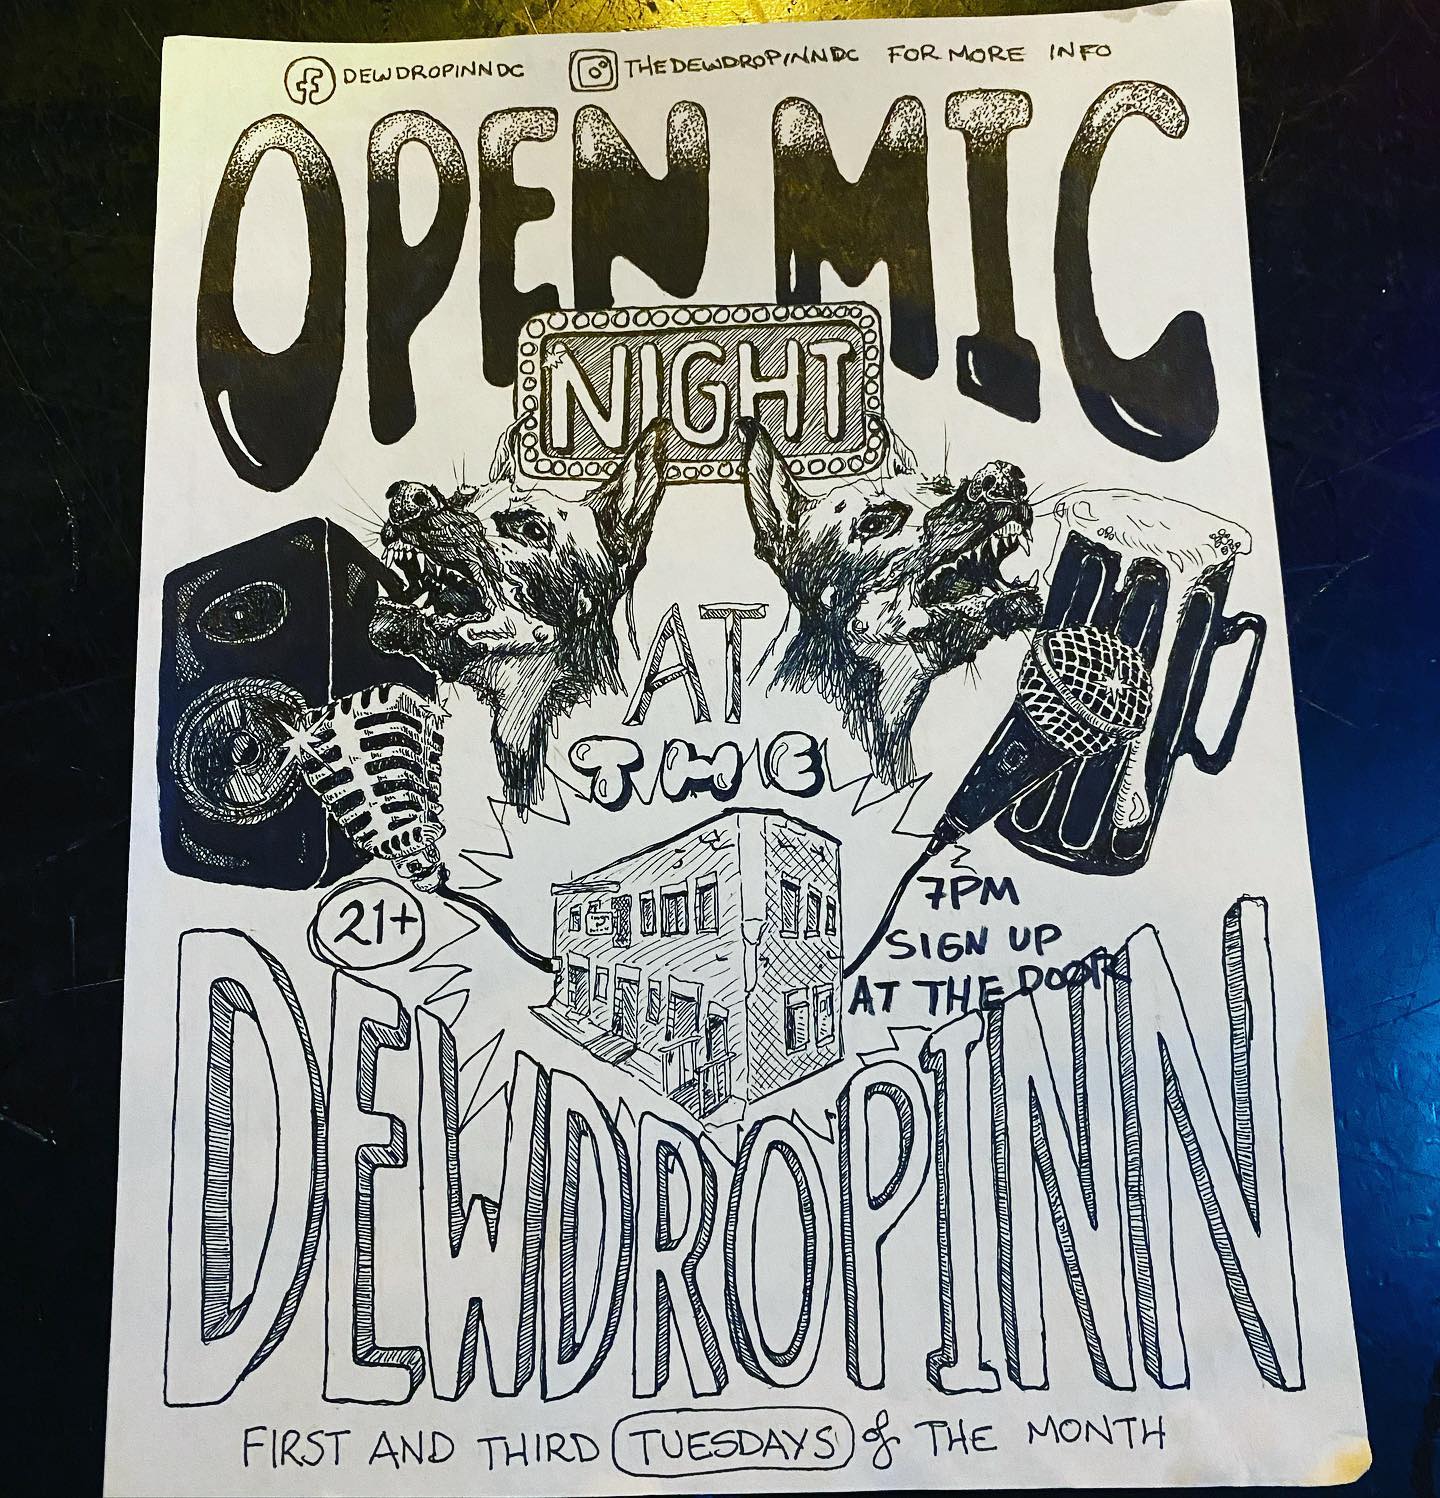 DEWDROPINNDC THEDEWDROPINNDC FOR MORE INFO
OPEN MIC
NIGHT
AT
THE
21+
7PM
SIGN UP
AT THE DOOR
DEWDROPINN
FIRST AND THIRD TUESDAYS of THE MONTH